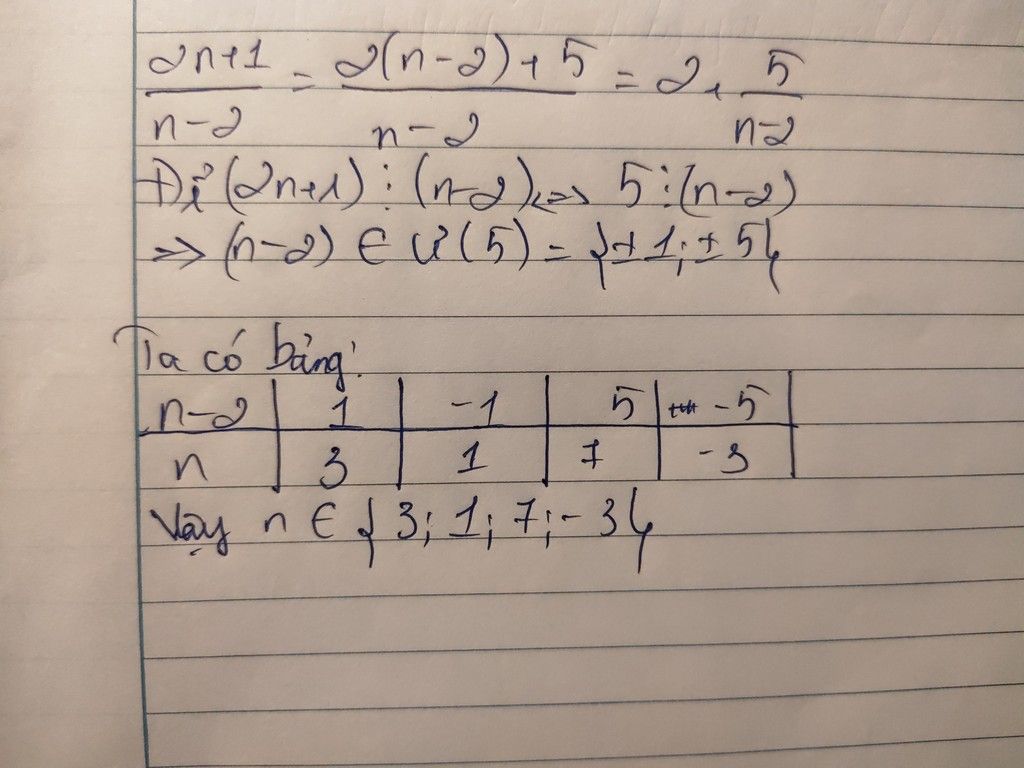 2n+1/n-2 = 2(n-2)+5/n-2 = 2+5/n-2
Để (2n+1)⋮(n-2) <=> 5⋮(n-2)
=> (n-2) ∈ Ư(5) = {±1;±5}
Ta có bảng:
n-2 | 1 | -1 | 5 | -5
n | 3 | 1 | 7 | -3
Vậy n ∈ {3;1;7;-3}